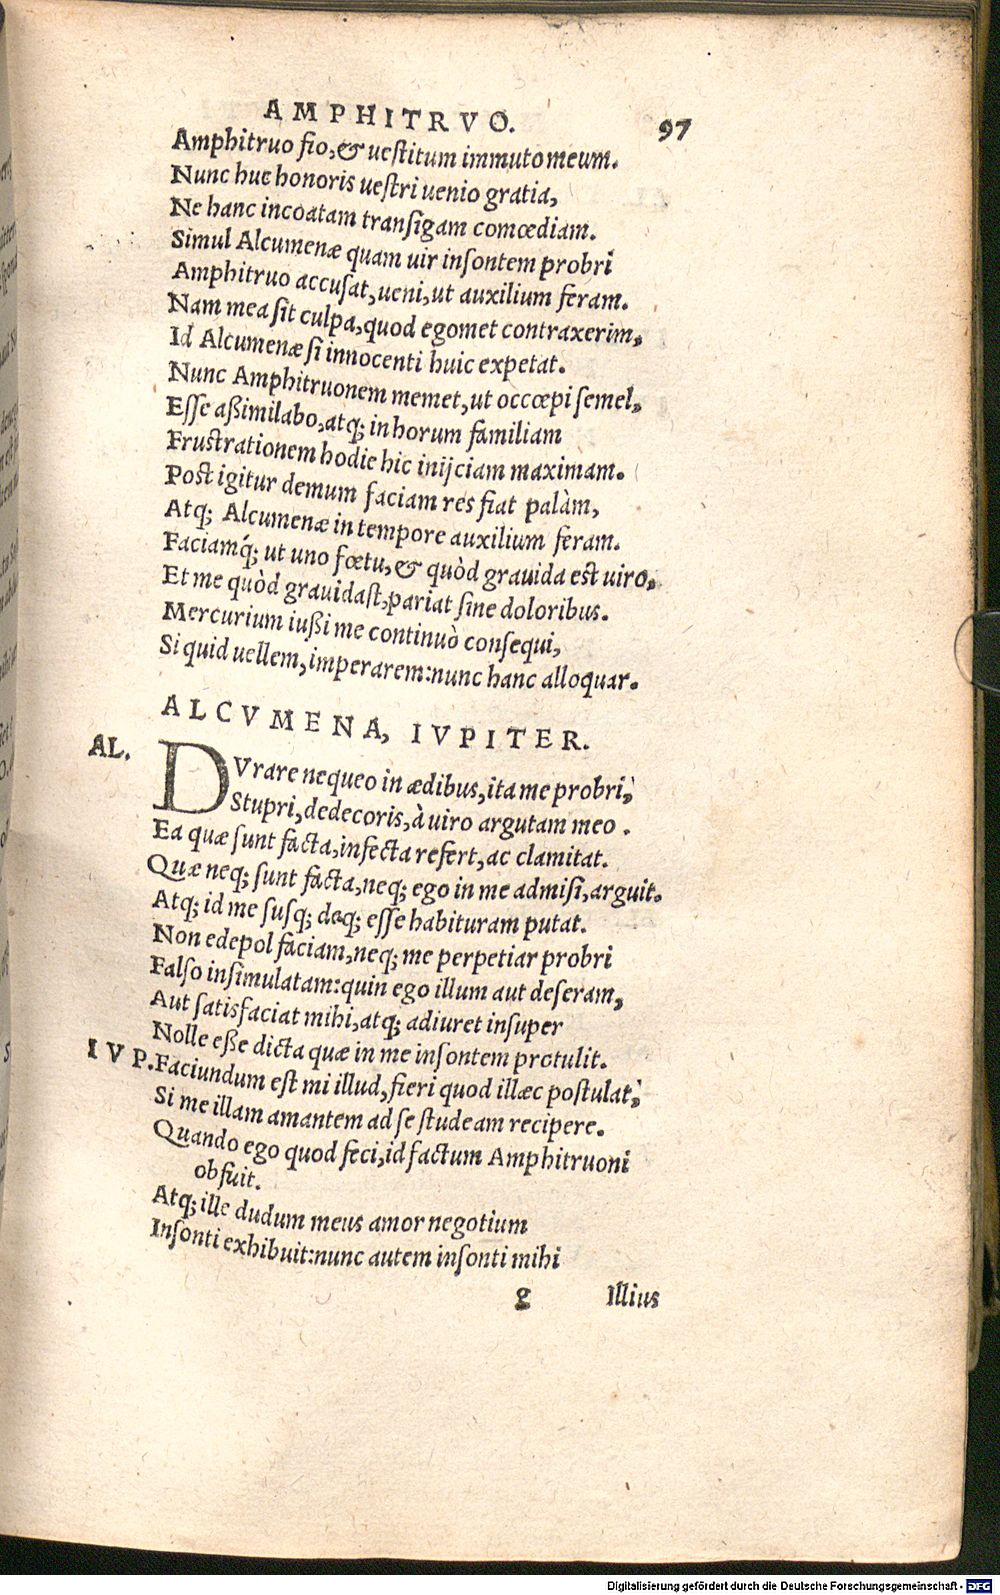 AMPHITRVO. 97
Amphitruo fio, & uestitum immuto meum.
Nunc huc honoris uestri uenio gratia,
Ne hanc incoatam transigam comœdiam.
Simul Alcumenæ quam uir insontem probri
Amphitruo accusat, ueni, ut auxilium feram.
Nam mea sit culpa, quod egomet contraxerim,
Id Alcumenæ si innocenti huic expetat.
Nunc Amphitruonem memet, ut occœpi semel,
Esse aßimilabo, atq; in horum familiam
Frustrationem hodie hic inijciam maximam.
Post igitur demum faciam res fiat palàm,
Atq; Alcumenæ in tempore auxilium feram.
Faciamq́; ut uno fœtu, & quòd grauida est uiro,
Et me quòd grauidast, pariat sine doloribus.
Mercurium iußi me continuò consequi,
Si quid uellem, imperarem: nunc hanc alloquar.
ALCVMENA, IVPITER.
AL. DVrare nequeo in ædibus, ita me probri,
Stupri, dedecoris, à uiro argutam meo.
Ea quæ sunt facta, infecta refert, ac clamitat.
Quæ neq; sunt facta, neq; ego in me admisi, arguit.
Atq; id me susq; deq; esse habituram putat.
Non edepol faciam, neq; me perpetiar probri
Falso insimulatam: quin ego illum aut deseram,
Aut satisfaciat mihi, atq; adiuret insuper
Nolle eße dicta quæ in me insontem protulit.
IVP. Faciundum est mi illud, fieri quod illæc postulat,
Si me illam amantem ad se studeam recipere.
Quando ego quod feci, id factum Amphitruoni
obfuit.
Atq; ille dudum meus amor negotium
Insonti exhibuit: nunc autem insonti mihi
g Illius
Digitalisierung gefördert durch die Deutsche Forschungsgemeinschaft - DFG